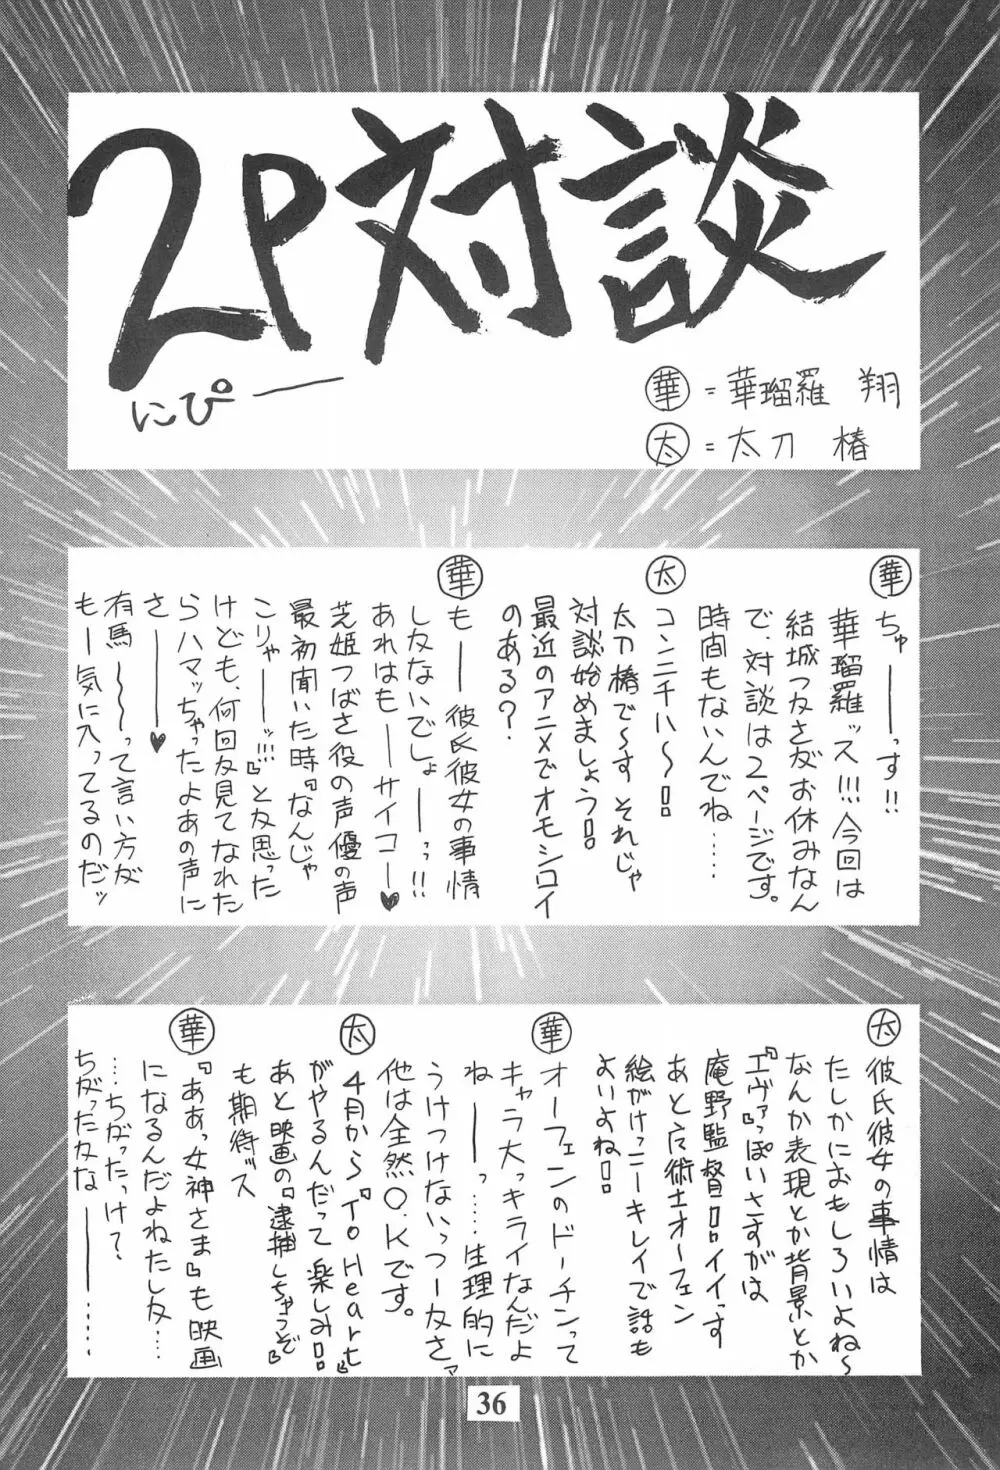 2P対談
にぴー
華=華瑠羅 翔
太=太刀 椿
華 ちゅーーっす!!
華瑠羅ッス!!!今回は
結城つかさがお休みなん
で、対談は2ページです。
時間もないんでね……
太 コンニチハ〜!
太刀椿で〜す それじゃ
対談始めましょう!
最近のアニメでオモシロイ
のある?
華 もーー彼氏彼女の事情
しかないでしょーーっ!!
あれはもーーサイコー♥
芝姫つばさ役の声優の声
最初聞いた時『なんじゃ
こりゃーーッ!!!』と思った
けども、何回か見てなれた
らハマッちゃったよあの声に
さーーー♥
有馬〜〜って言い方が
もー気に入ってるのだッ
太 彼氏彼女の事情は
たしかにおもしろいよね〜
なんか表現とか背景とか
『エヴァ』っぽいさすがは
庵野監督!!イイっす
あと魔術士オーフェン
絵がけっこーキレイで話も
よいよね!
華 オーフェンのドーチンって
キャラ大っキライなんだよ
ねーーっ……生理的に
うけつけないっつーかさァ
他は全然O.Kです。
太 4月から『To Heart』
がやるんだって楽しみ!!
あと映画の『逮捕しちゃうぞ』
も期待ズス
華 『ああっ女神さま』も映画
になるんだよねたしか……
……ちがったっけ?
ちがったかなーーー……
36